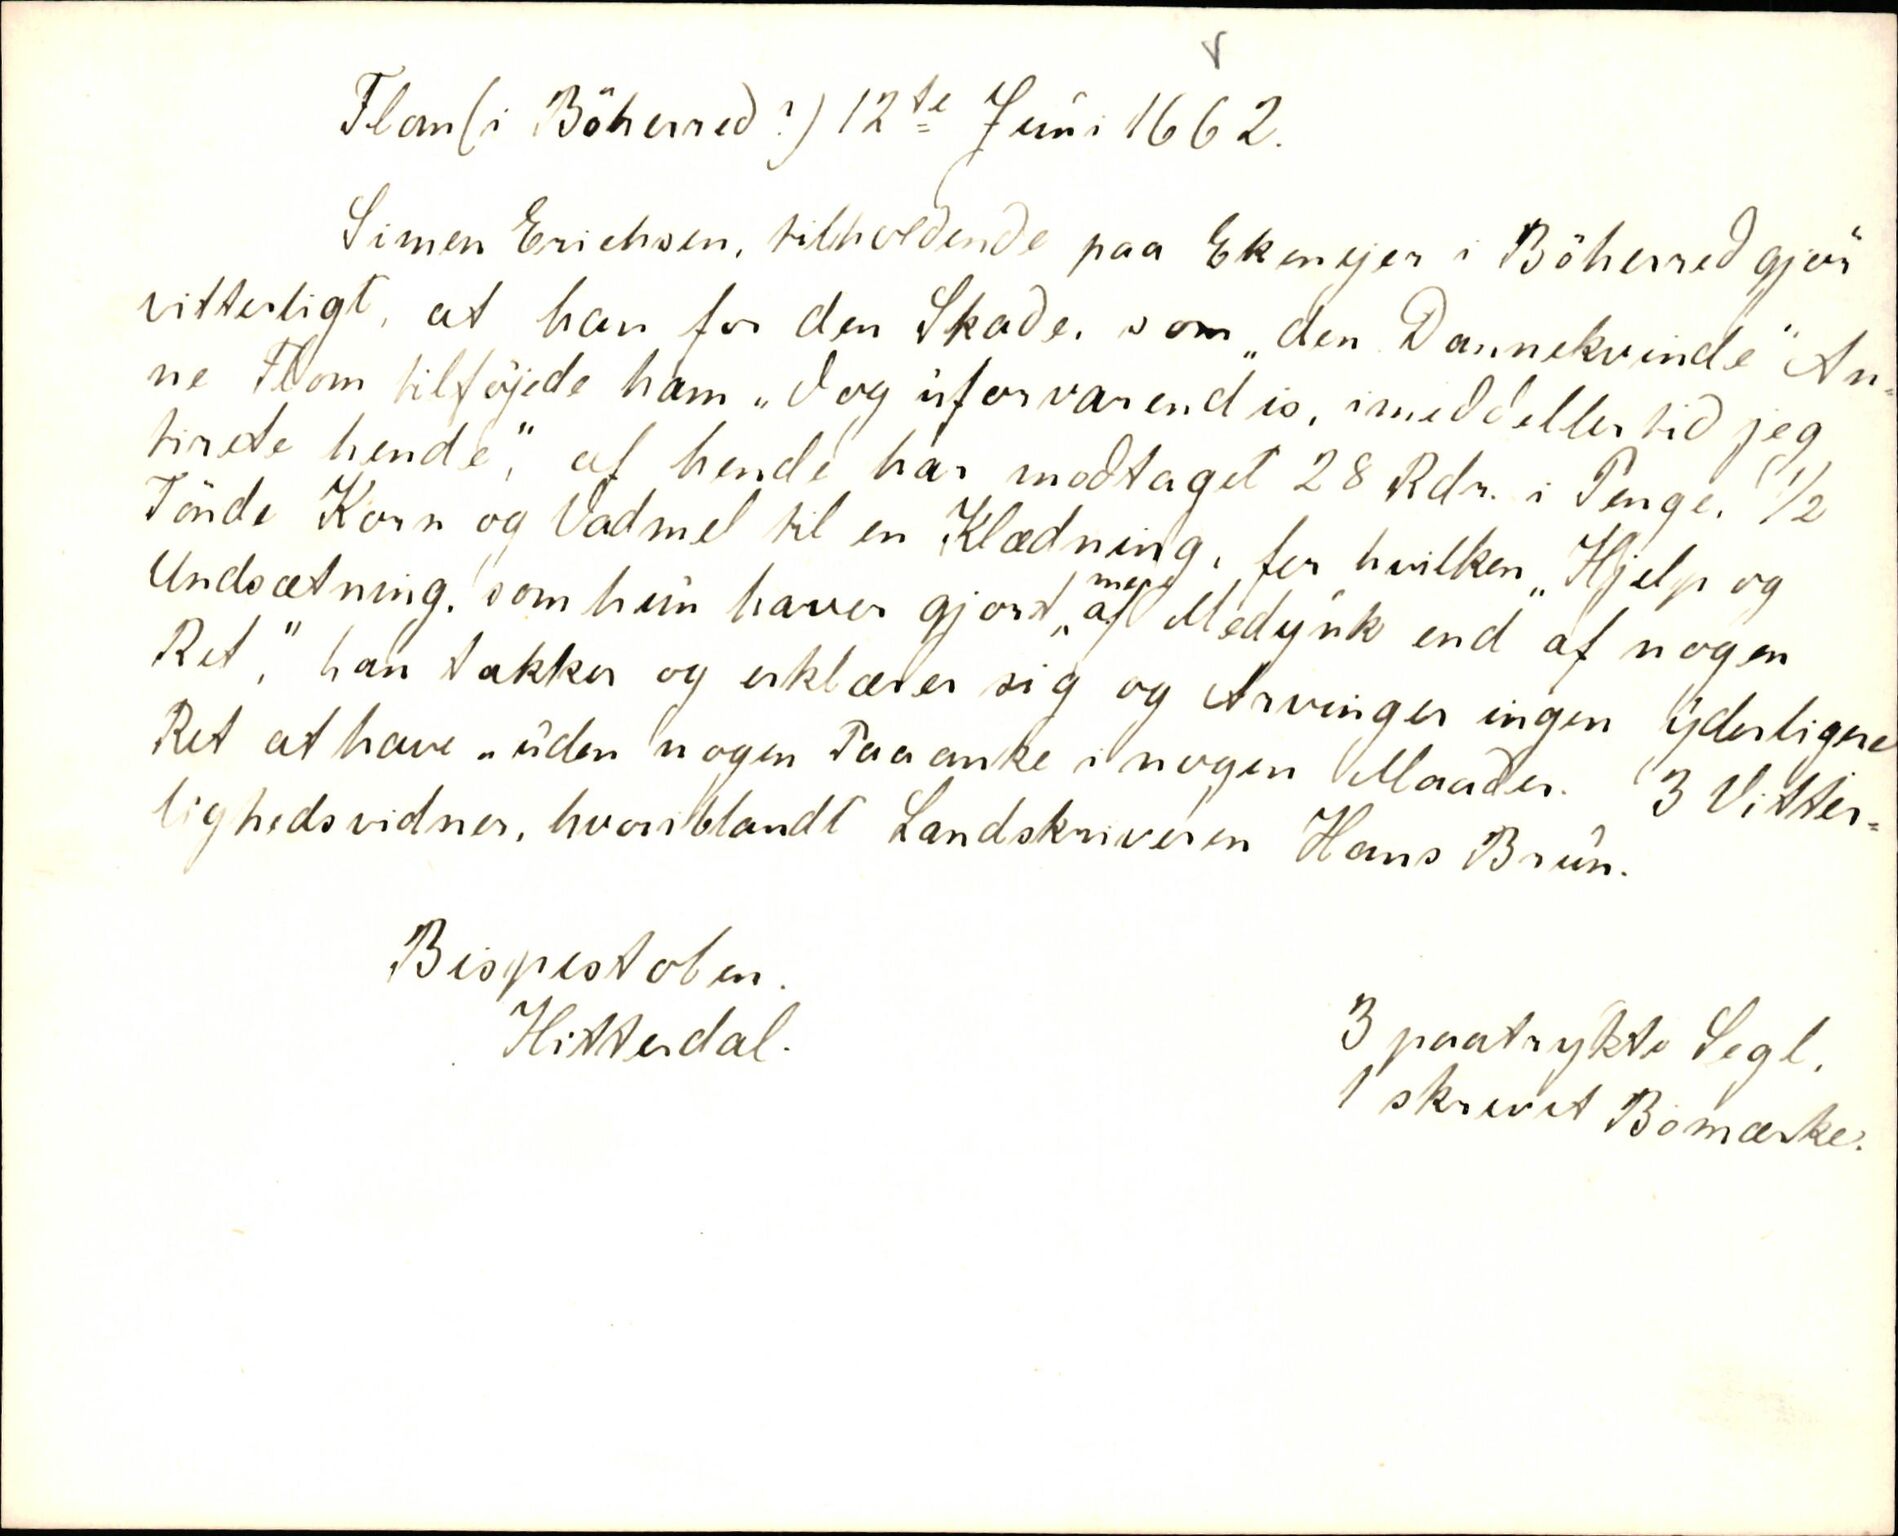 Flom (i Böherred?) 12te Juni 1662.
Simen Erichsen, tilholdende paa Ekenejer i Böherred gjör
vitterligt, at han for den Skade, som „den Dannekvinde" An-
ne Flom tilföjede ham „dog uforvarendis, imeddeller tid jeg
tirete hende", af hende har modtaget 28 Rdr. i Penge, 1/2
Tönde Korn og Vadmel til en Klædning, for hvilken „Hjelp og
Undsætning, som hun haver gjort, „mere af Medynk end af nogen
Ret," han takker og erklærer sig og Arvinger ingen yderligere
Ret at have „uden nogen Paaanke i nogen Maader. 3 Vitter-
lighedsvidner, hvoriblandt Landskriveren Hans Brun.
Bispestolen.
Hitterdal.
3 paatrykte Segl,
1 skrevet Bomærke.